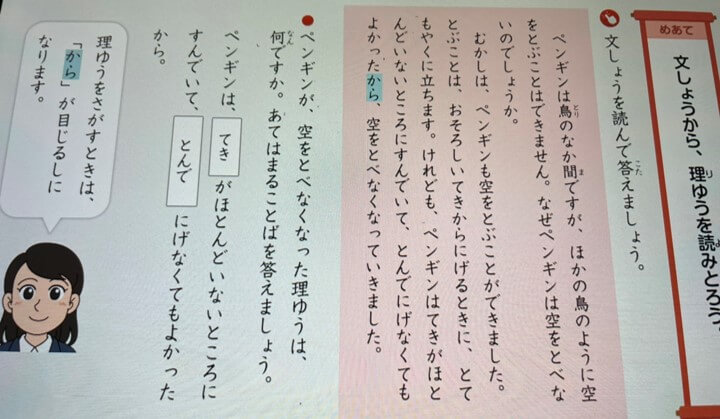 めあて
文しょうから、理ゆうを読みとろう。
文しょうを読んで答えましょう。
ペンギンは鳥のなか間ですが、ほかの鳥のように空
をとぶことはできません。なぜペンギンは空をとべな
いのでしょうか。
むかしは、ペンギンも空をとぶことができました。
とぶことは、おそろしいてきからにげるときに、とて
もやくに立ちます。けれども、ペンギンはてきがほと
んどいないところにすんでいて、とんでにげなくても
よかったから、空をとべなくなっていきました。
ペンギンが、空をとべなくなった理ゆうは、
何ですか。あてはまることばを答えましょう。
ペンギンは、てきがほとんどいないところに
すんでいて、とんでにげなくてもよかった
から。
理ゆうをさがすときは、
「から」が目じるしに
なります。